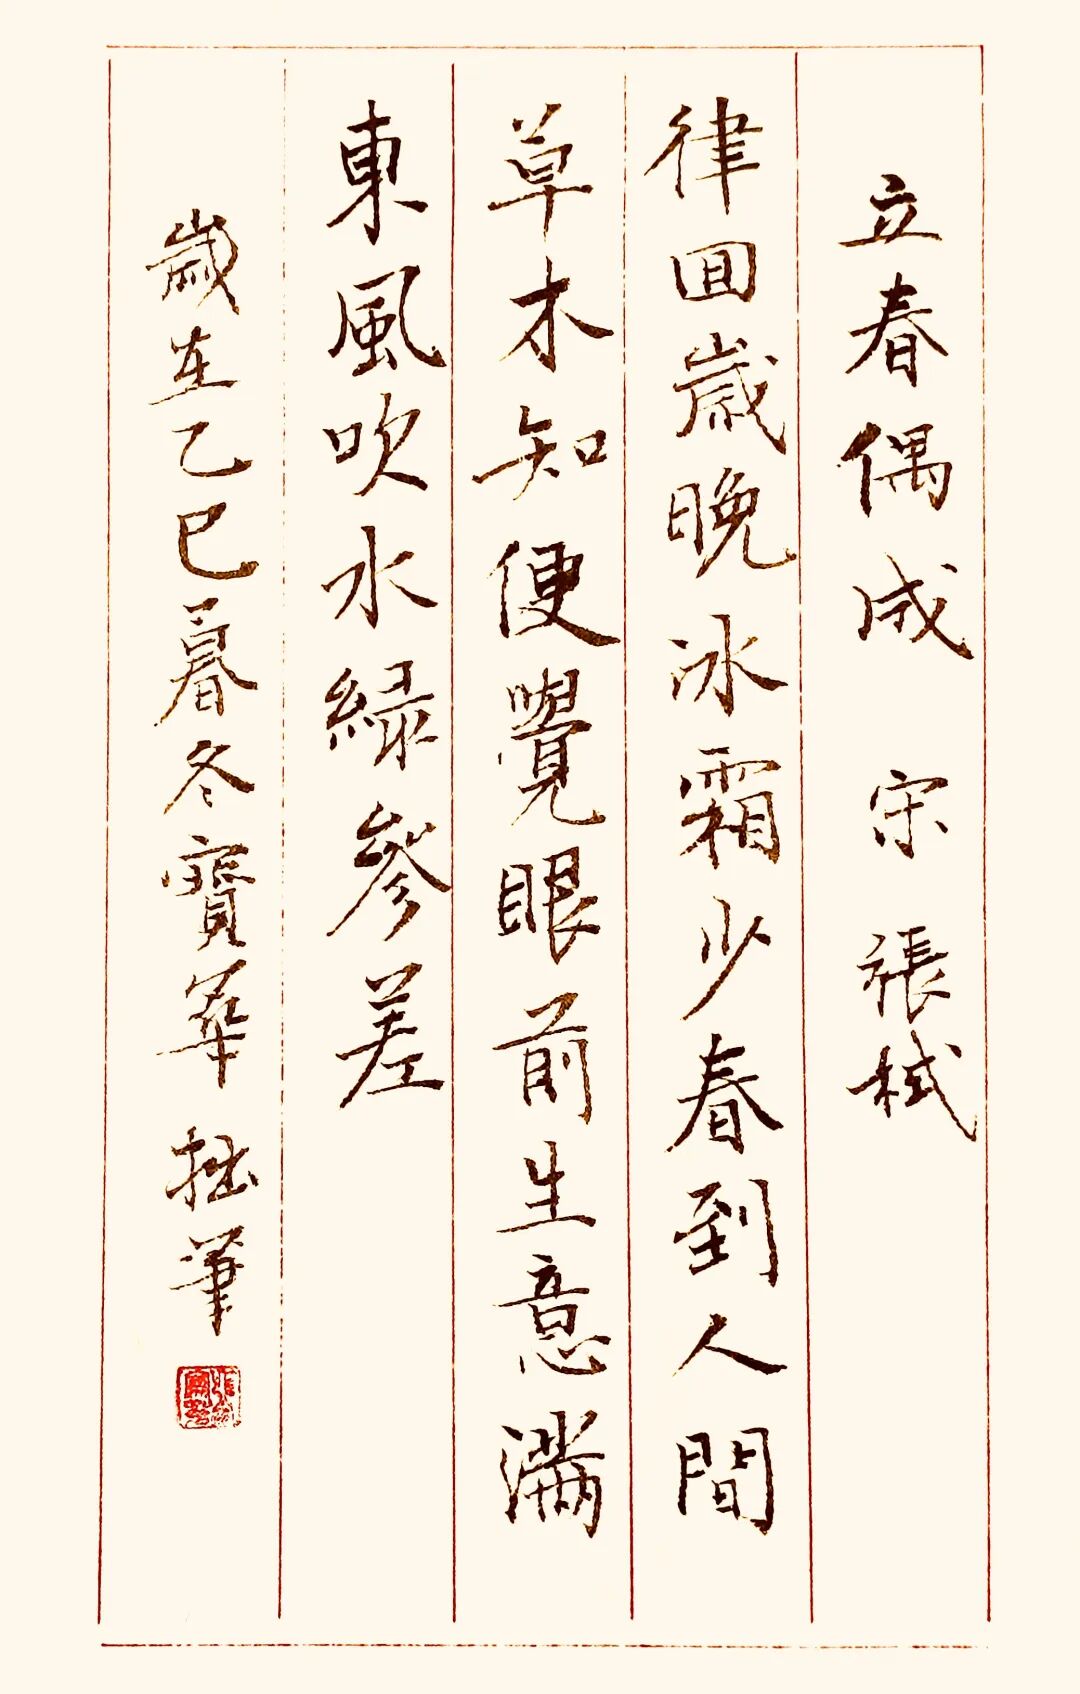 立春偶成 宋 張栻
律回歲晚冰霜少春到人間
草木知便覺眼前生意滿
東風吹水綠參差
歲在乙巳暮冬寶華 拙筆